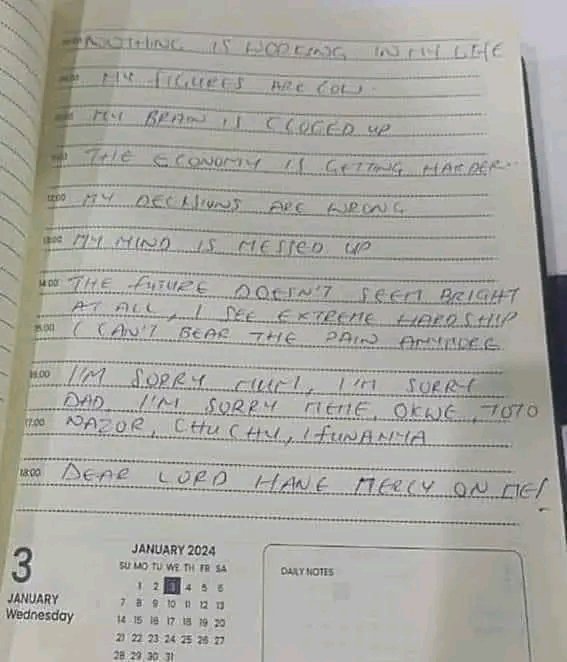 NOTHING IS WORKING IN MY LIFE
MY FIGURES ARE LOW.
MY BRAIN IS CLOGED UP
THE ECONOMY IS GETTING HARDER
12:00 MY DECISIONS ARE WRONG
13:00 MY MIND IS MESSED UP
14:00 THE FUTURE DOESN'T SEEM BRIGHT
AT ALL, I SEE EXTREME HARDSHIP
15:00 I CAN'T BEAR THE PAIN ANYMORE
16:00 I'M SORRY MUMI, I'M SORRY
DAD, I'M SORRY MEME, OKWE, TOTO
17:00 NAZOR, CHUCHU, IFUNANYA
18:00 DEAR LORD HAVE MERCY ON ME!
3
JANUARY
Wednesday
JANUARY 2024
SU MO TU WE TH FR SA
1 2 3 4 5 6
7 8 9 10 11 12 13
14 15 16 17 18 19 20
21 22 23 24 25 26 27
28 29 30 31
DAILY NOTES